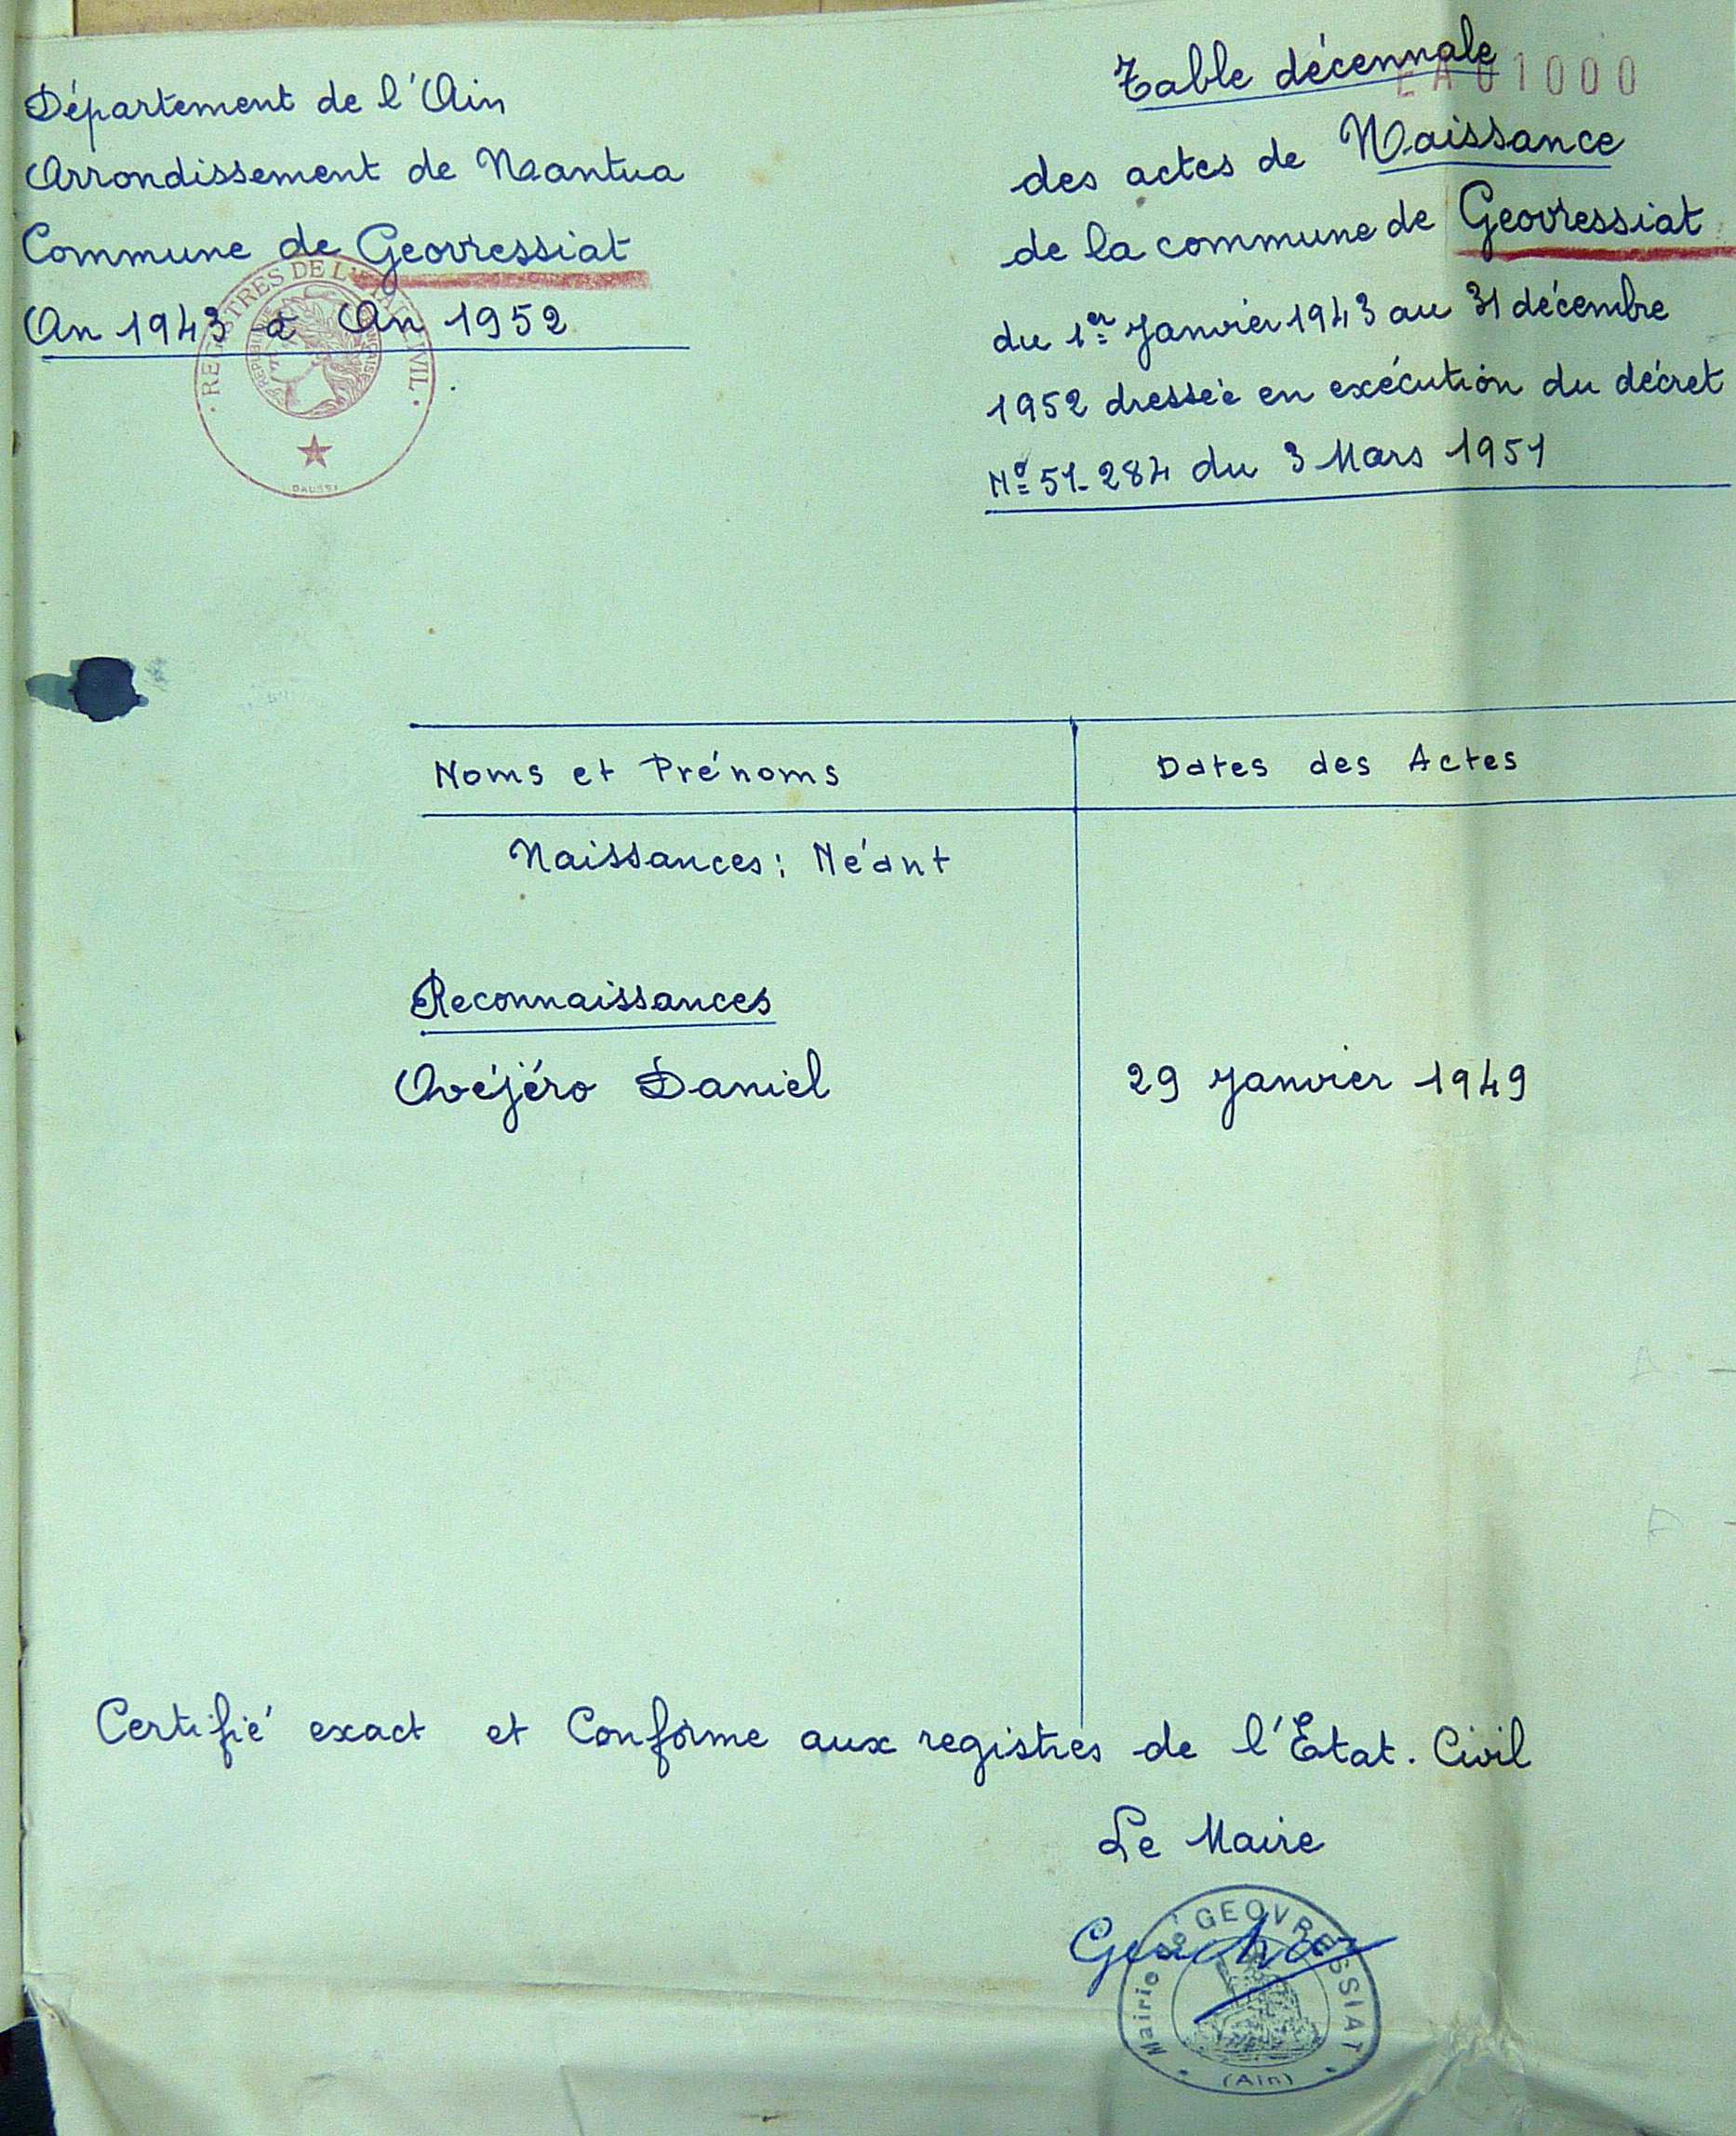 Département de l'Ain
Arrondissement de Nantua
Commune de Geovressiat
An 1943 à An 1952
REGISTRES DE L'ETAT CIVIL
Table décennale
01000
des actes de Naissance
de la commune de Geovressiat
du 1er Janvier 1943 au 31 décembre
1952 dressée en exécution du décret
No 51-284 du 3 Mars 1951
Noms et Prénoms
Dates des Actes
Naissances : Néant
Reconnaissances
Ovéjéro Daniel
29 Janvier 1949
Certifié exact et Conforme aux registres de l'Etat. Civil
Le Maire
Mairie de GEOVRESSIAT
(Ain)